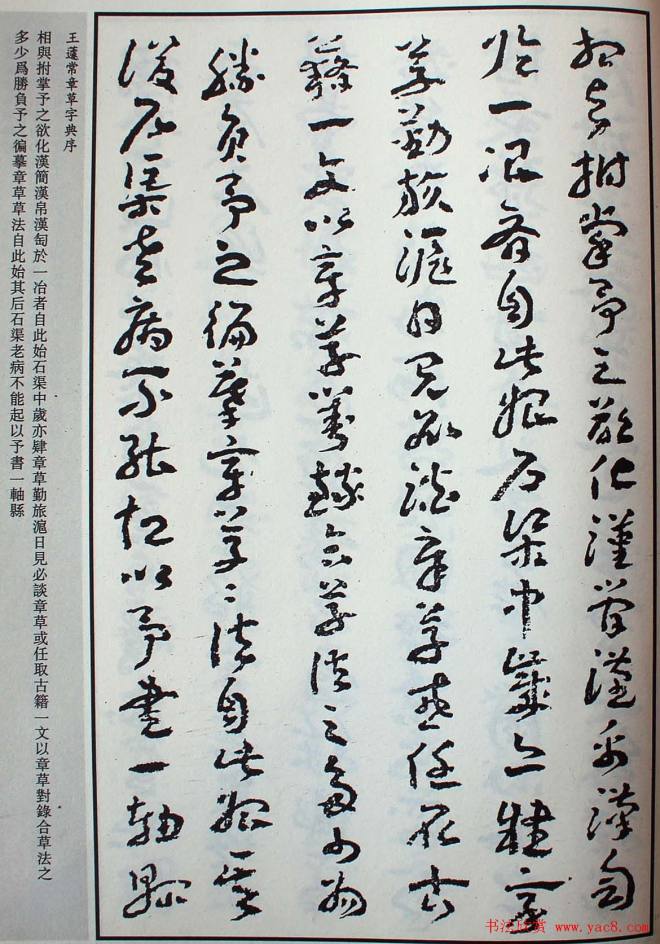 相與拊掌予之欲化漢簡漢帛漢匋
於一冶者自此始石渠中歲亦肄章
草勤旅滬日見必談章草或任取古
籍一文以章草對錄合草法之多少為
勝負予之徧摹章草〻法自此始其
後石渠老病不能起以予書一軸縣
王蘧常章草字典序
相與拊掌予之欲化漢簡漢帛漢匋於一冶者自此始石渠中歲亦肄章草勤旅滬日見必談章草或任取古籍一文以章草對錄合草法之
多少爲勝負予之徧摹章草草法自此始其后石渠老病不能起以予書一軸縣
书法欣赏 www.yac8.com